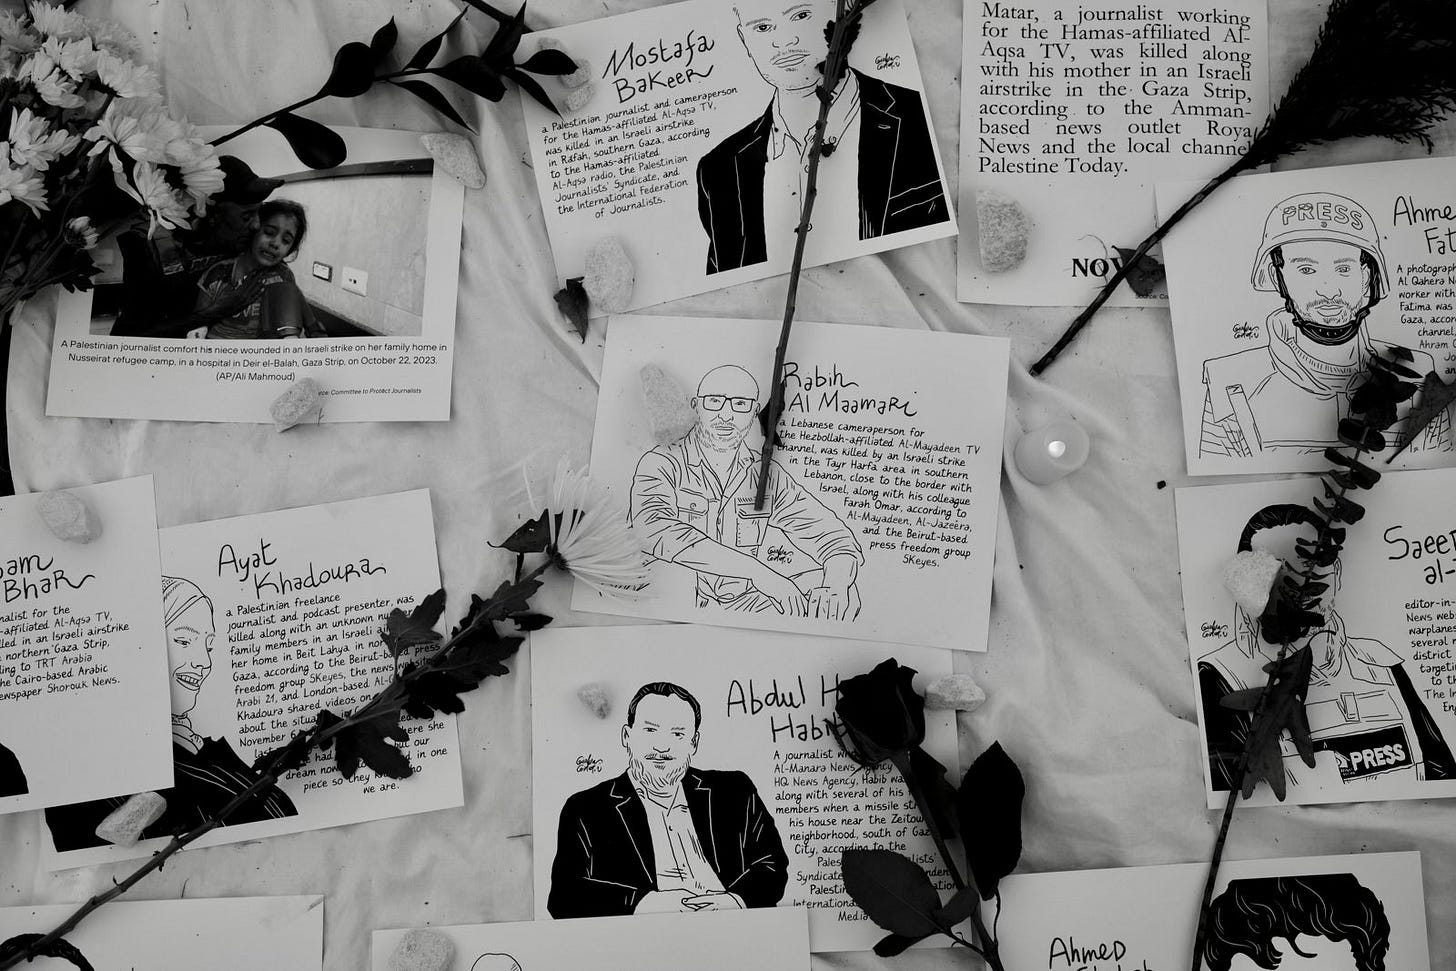 Mostafa
Bakeer
a Palestinian journalist and cameraperson
for the Hamas-affiliated Al-Aqsa TV,
was killed in an Israeli airstrike
in Rafah, southern Gaza, according
to the Hamas-affiliated
Al-Aqsa radio, the Palestinian
Journalists' Syndicate, and
the International Federation
of Journalists.
Matar, a journalist working
for the Hamas-affiliated Al-
Aqsa TV, was killed along
with his mother in an Israeli
airstrike in the Gaza Strip,
according to the Amman-
based news outlet Roya
News and the local channel
Palestine Today.
NOV
PRESS
Ahme
Fat
A photograph
Al Qahera New
worker with
Fatima was
Gaza, accor
channel,
Ahram
an
A Palestinian journalist comfort his niece wounded in an Israeli strike on her family home in
Nusseirat refugee camp, in a hospital in Deir el-Balah, Gaza Strip, on October 22, 2023.
(AP/Ali Mahmoud)
Committee to Protect Journalists
Rabih
Al Maamari
a Lebanese cameraperson for
the Hezbollah-affiliated Al-Mayadeen TV
channel, was killed by an Israeli strike
in the Tayr Harfa area in southern
Lebanon, close to the border with
Israel, along with his colleague
Farah Omar, according to
Al-Mayadeen, Al-Jazeera,
and the Beirut-based
press freedom group
SKeyes.
sam
Bhar
nalist for the
-affiliated Al-Aqsa TV,
lled in an Israeli airstrike
northern Gaza Strip,
ding to TRT Arabia
he Cairo-based Arabic
ewspaper Shorouk News.
Ayat
Khadoura
a Palestinian freelance
journalist and podcast presenter, was
killed along with an unknown
family members in an Israeli
her home in Beit Lahya in
Gaza, according to the Beirut-based press
freedom group SKeyes, the news website
Arabi 21, and London-based
Khadoura shared videos on
about the
November
where she
had
but our
dream now
in one
piece so they
who
we are.
Abdul H
Habib
A journalist who
Al-Manara News Agency
HQ News Agency, Habib was
along with several of his
members when a missile
his house near the Zeitou
neighborhood, south of Gaza
City, according to the
Syndicate
International
Media
Saeed
al-
editor-in-
News web
warplanes
several
district
targeti
to th
The In
PRESS
Ahmed